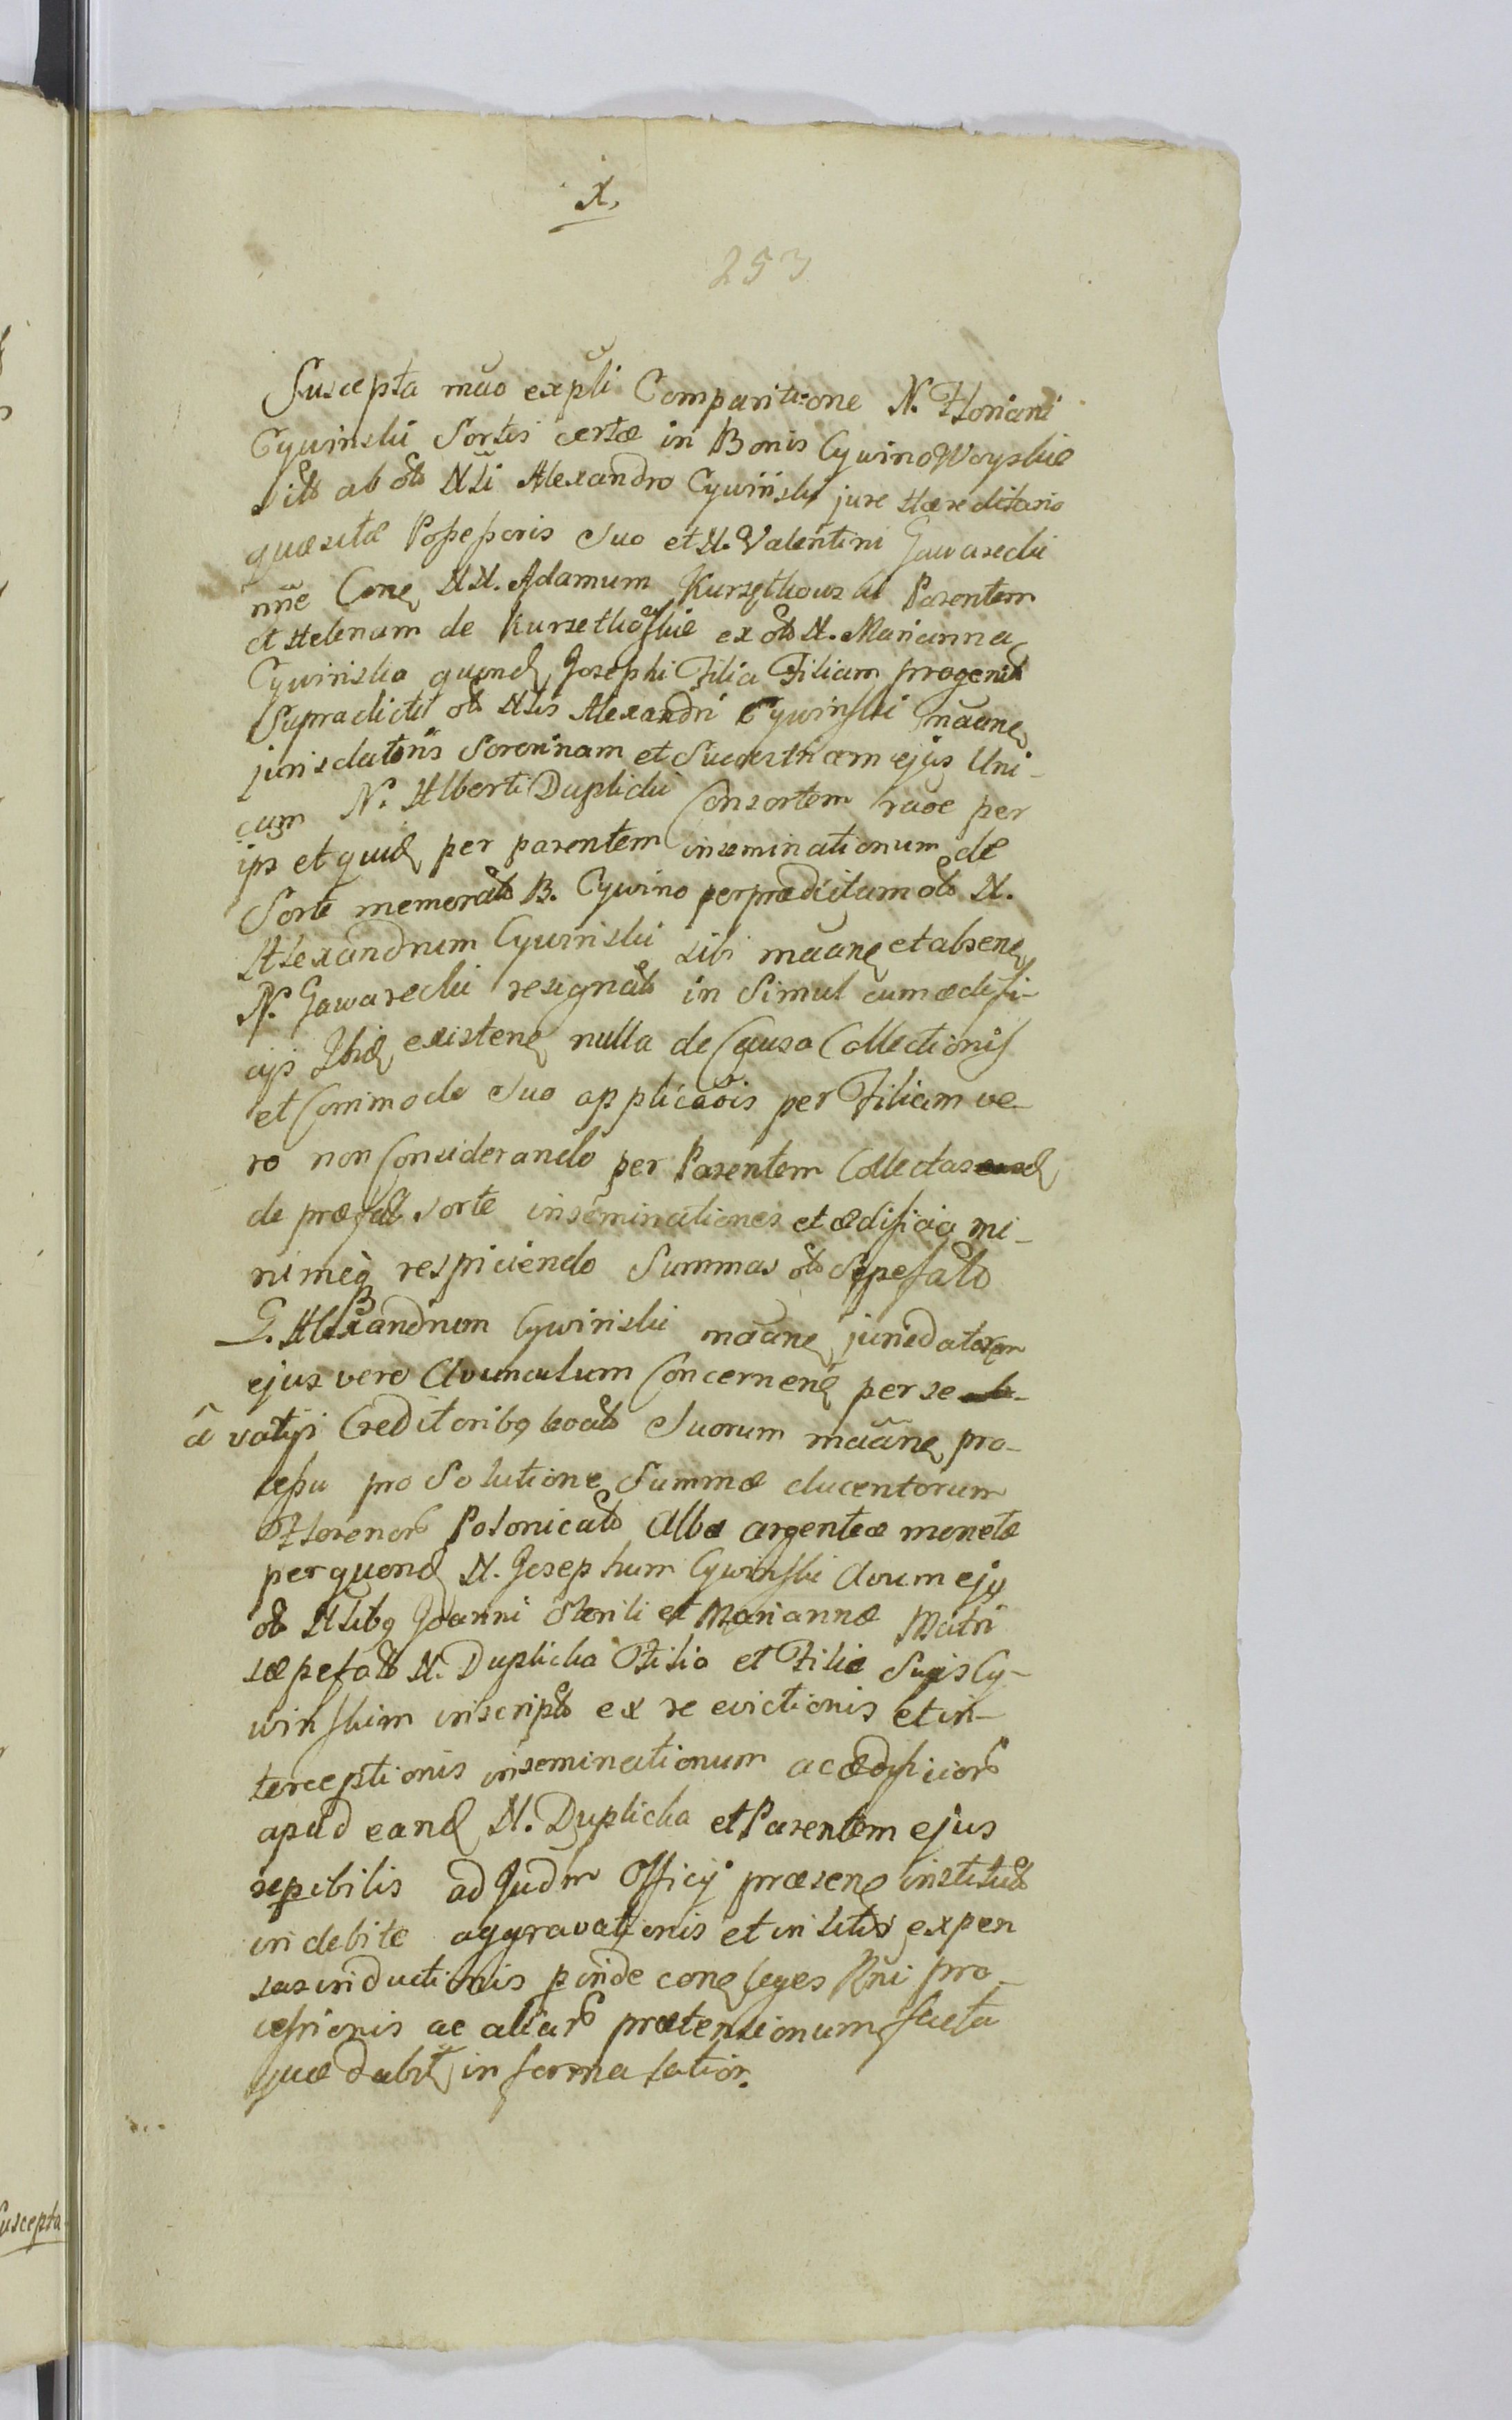 X.
253
Suscepta mão expli Comparitione N. Floriani
Cywinski Sortis certæ in Bonis Cywino Woyskie
sitæ ab olo Nli Alexandro Cywiński jure Hæreditario
quæsitæ Possessoris Suo et N. Valentini Gawarecki
nñe Cone NN. Adamum Kurzętkowski Parentem
et Helenam de Kurzetkoskie ex olo N. Marianna
Cywinska quond Josephi Filia Filiam progenit
Supradicti ol Nlis Alexandri Cywinski mãane
jurisdatoris Sororinam et Sucestricem ejus Uni-
cam N. Alberti Duplicki Consortem raõe per
ips et quid per parentem inseminationum de
Sorte memorato B. Cywino per prædictum olo N.
Alexandrum Cywinski sibi mãane et absene
N. Gawarecki resignato in Simul cum ædifi-
cijs Ibid existene nulla de Causa Collectionis
et Commodo Suo applicaõis per Filiam ve-
ro non Considerando per Parentem Collectas
de præfat Sorte inseminationes et ædificia mi-
nimeq respiciendo Summas olo Sepefato
G. Alexandrum Cywinski mãane jurisdatorem
ejus vero Avunculum Concernene per se
â vatijs Creditoribq leoato Suorum mãane pro-
cessu pro Solutione Summæ ducentorum
Florenor Polonicalo Albæ argenteæ monetæ
per quond N. Josephum Cywinski Avum ejq
ol Nlibq Joanni Sterili et Mariannæ Matri
sæpefato N. Duplicka Filio et Filiæ Suis Cy-
winskim inscripto ex re evictionis et in-
terceptionis inseminationum ac ædificior
apud eand N. Duplicka et Parentem ejus
repibilis ad Judm Officij præsene institut
indebite aggravationis et in litis expen
sas inductionis pinde cone leges Rni pro-
cessionis ac aliar prætensionum facta
quæ dabit in forma latior.
Suscepta